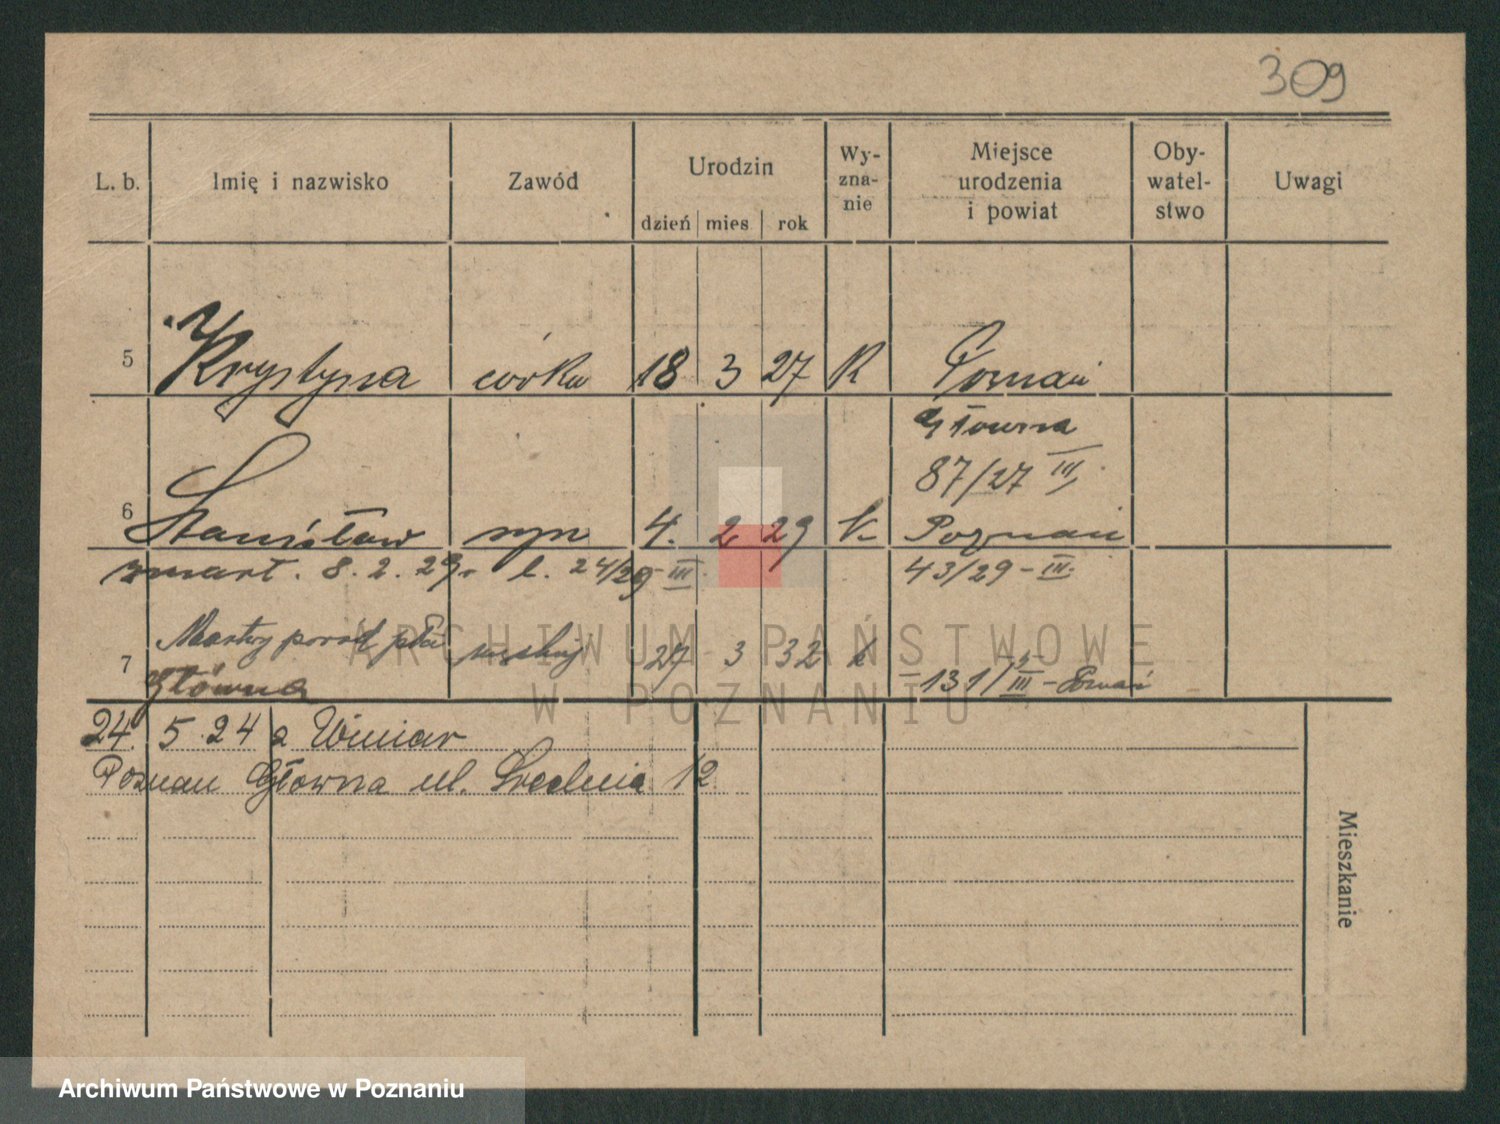 309
L. b. Imię i nazwisko Zawód Urodzin dzień mies rok Wy-zna-nie Miejsce urodzenia i powiat Oby-watel-stwo Uwagi
5 Krystyna córka 18 3 27 R Poznań
Główna
87/27 III
6 Stanisław syn 4. 2 29 k Poznań
zmart. 8. 2. 29r l. 24/29 III 43/29 - III
7 Martwy poród płci męskiej 27 3 32 k
Główna 131/III - Poznań
24. 5. 24 z Winiar
Poznań Główna ul. Średnia 12
Mieszkanie
ARCHIWUM PAŃSTWOWE
W POZNANIU
Archiwum Państwowe w Poznaniu